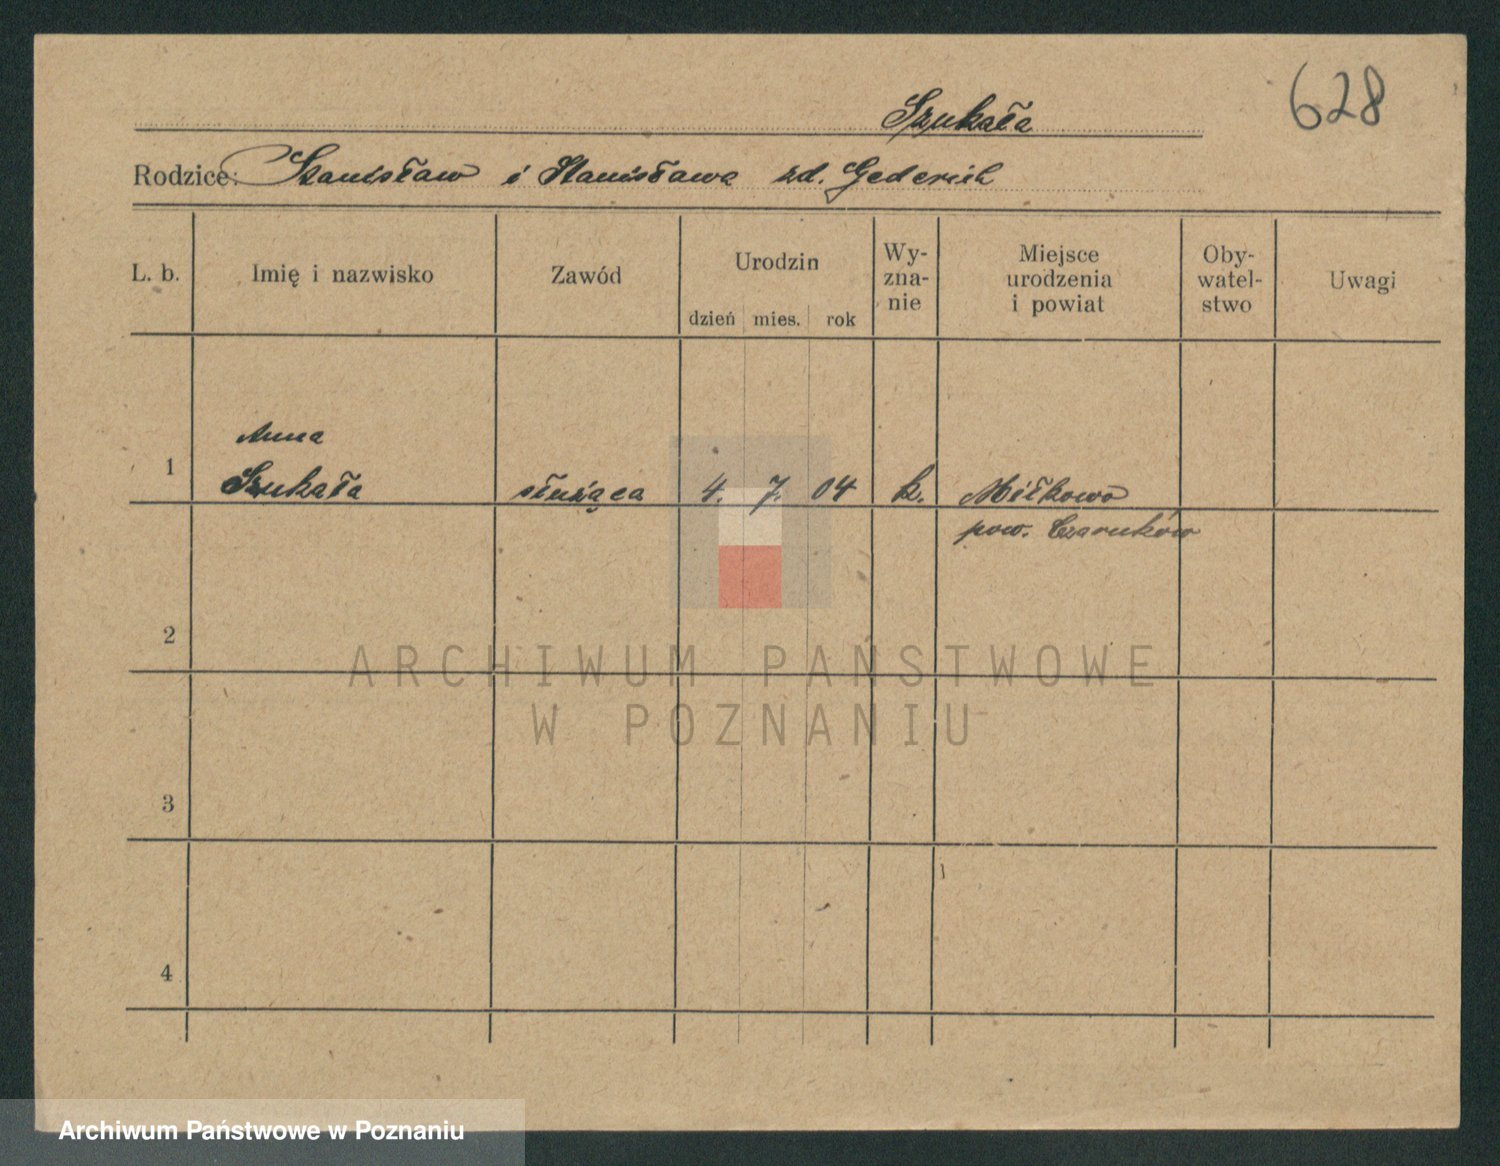 628
Szukała
Rodzice: Stanisław i Stanisława zd. Gederich
L. b. Imię i nazwisko Zawód Urodzin Wy- Miejsce Oby- Uwagi
zna- urodzenia watel-
nie i powiat stwo
dzień mies. rok
Anna
1 Szukała służąca 4. 7. 04 k. Miłkowo
pow. Czarnków
2
ARCHIWUM PAŃSTWOWE
W POZNANIU
3
4
Archiwum Państwowe w Poznaniu